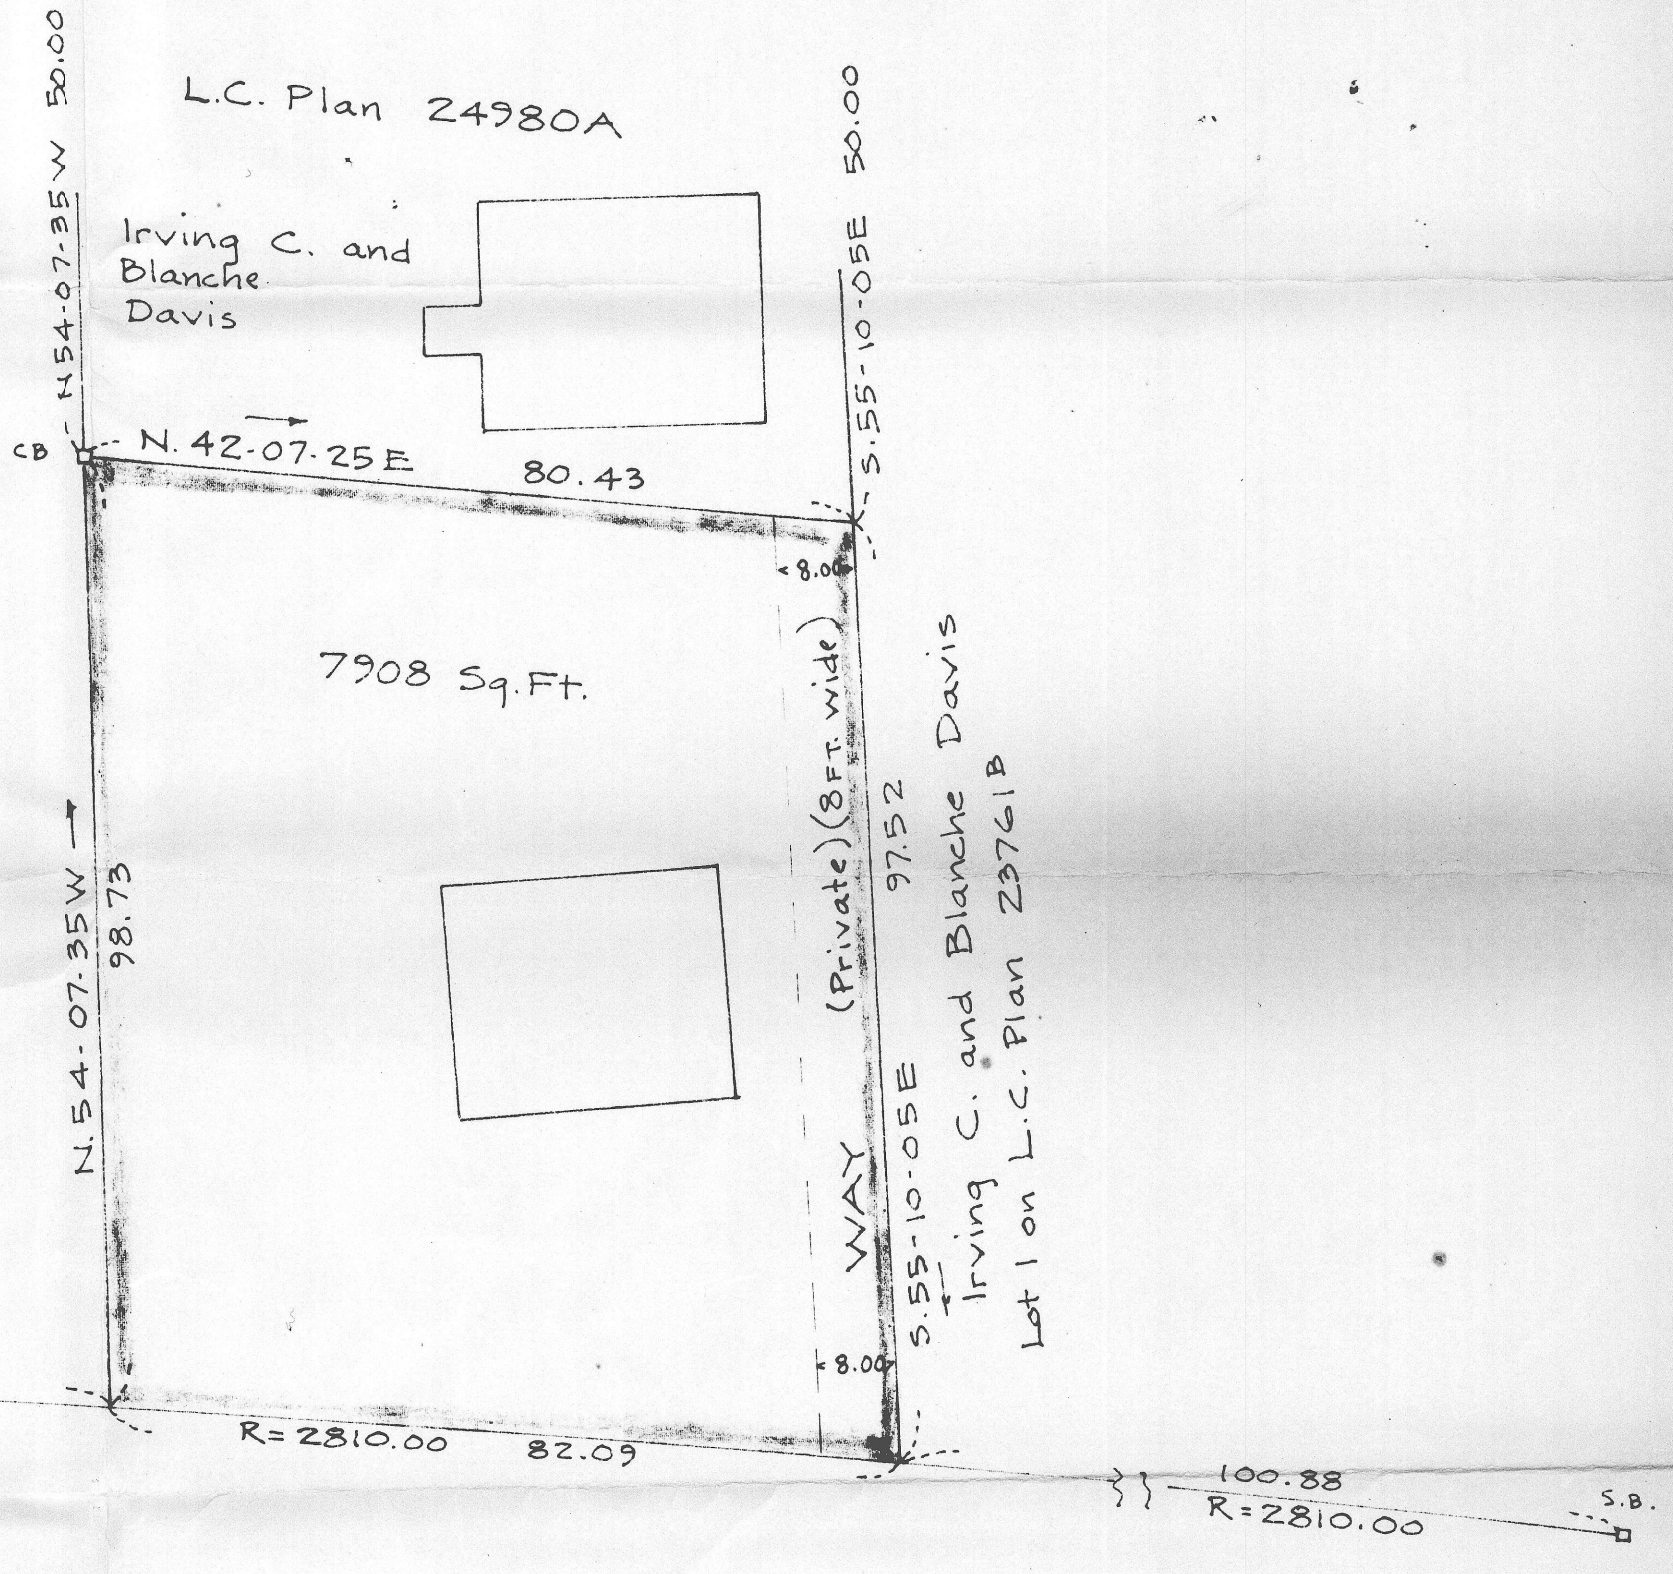 N54-07-35W 50.00
L.C. Plan 24980A
S.55-10-05E 50.00
Irving C. and
Blanche
Davis
CB
N. 42-07-25E
80.43
8.00
7908 Sq.Ft.
N.54-07-35W
98.73
WAY (Private)(8FT. wide)
97.52
S.55-10-05E
Irving C. and Blanche Davis
Lot 1 on L.C. Plan 23761B
8.00
R=2810.00 82.09
100.88
R=2810.00
S.B.